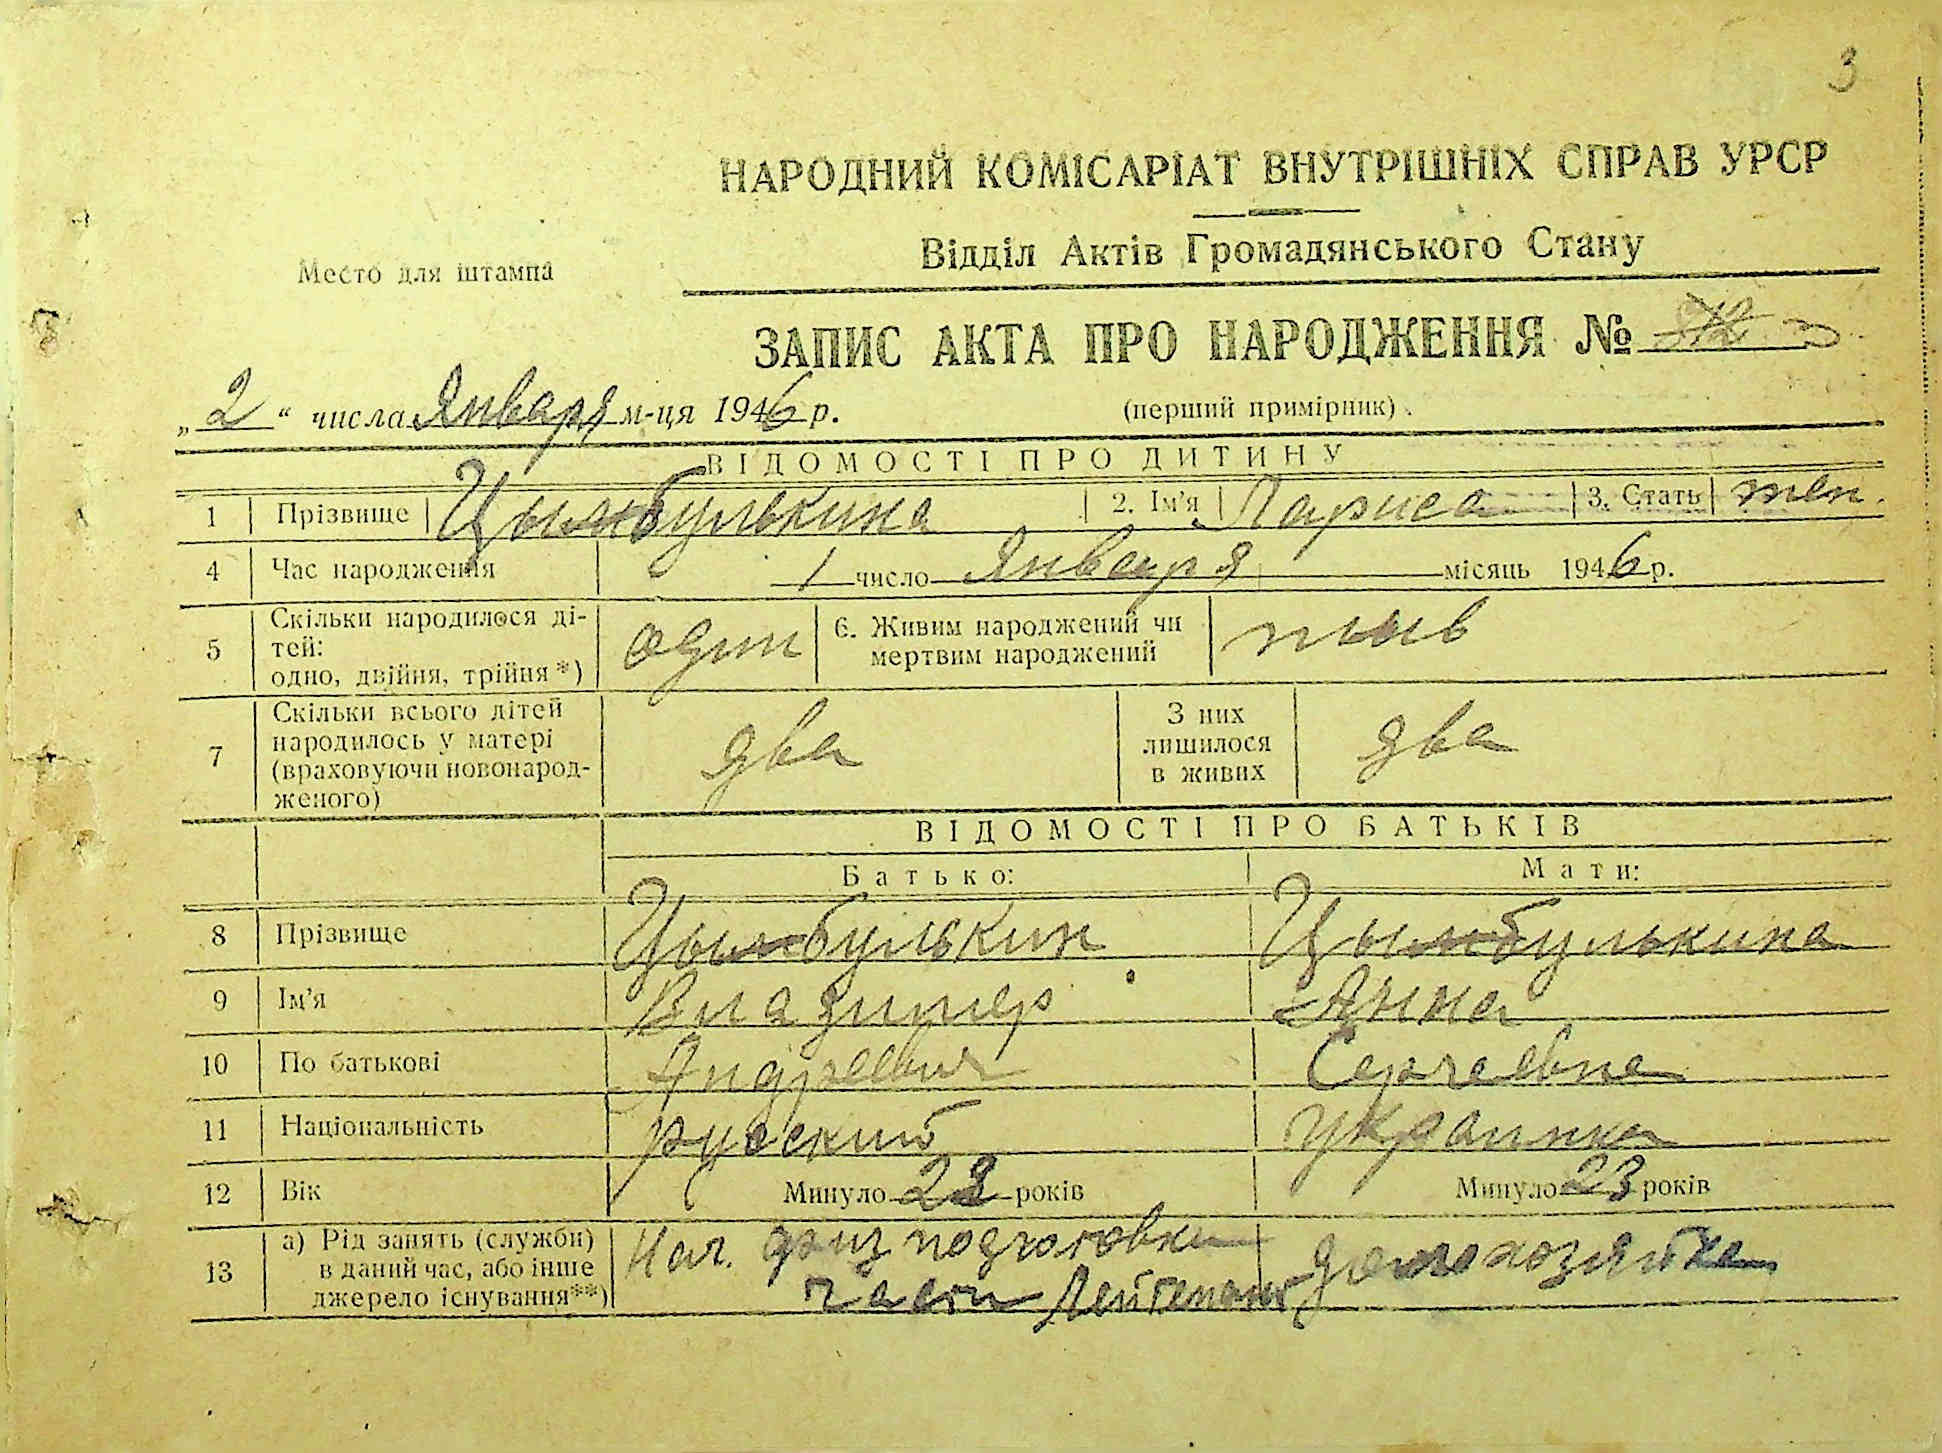 3
НАРОДНИЙ КОМІСАРІАТ ВНУТРІШНІХ СПРАВ УРСР
Відділ Актів Громадянського Стану
Место для штампа
ЗАПИС АКТА ПРО НАРОДЖЕННЯ № 3
„2“ числа Января м-ця 1946 р. (перший примірник).
ВІДОМОСТІ ПРО ДИТИНУ
1 Прізвище Цымбулькина 2. Ім'я Лариса 3. Стать жен.
4 Час народження 1 число Января місяць 1946 р.
5 Скільки народилося ді-
тей:
одно, двійня, трійня*) один
6. Живим народжений чи
мертвим народжений жив
7 Скільки всього дітей
народилось у матері
(враховуючи новонарод-
женого) два
З них
лишилося
в живих два
ВІДОМОСТІ ПРО БАТЬКІВ
Батько: Мати:
8 Прізвище Цымбулькин Цымбулькина
9 Ім'я Владимер Анна
10 По батькові Андреевич Сергеевна
11 Національність русский украинка
12 Вік Минуло 23 років Минуло 23 років
13 а) Рід занять (служби)
в даний час, або інше
джерело існування**)
Нач. физ подготовки
части Лейтенант
домохозяйка